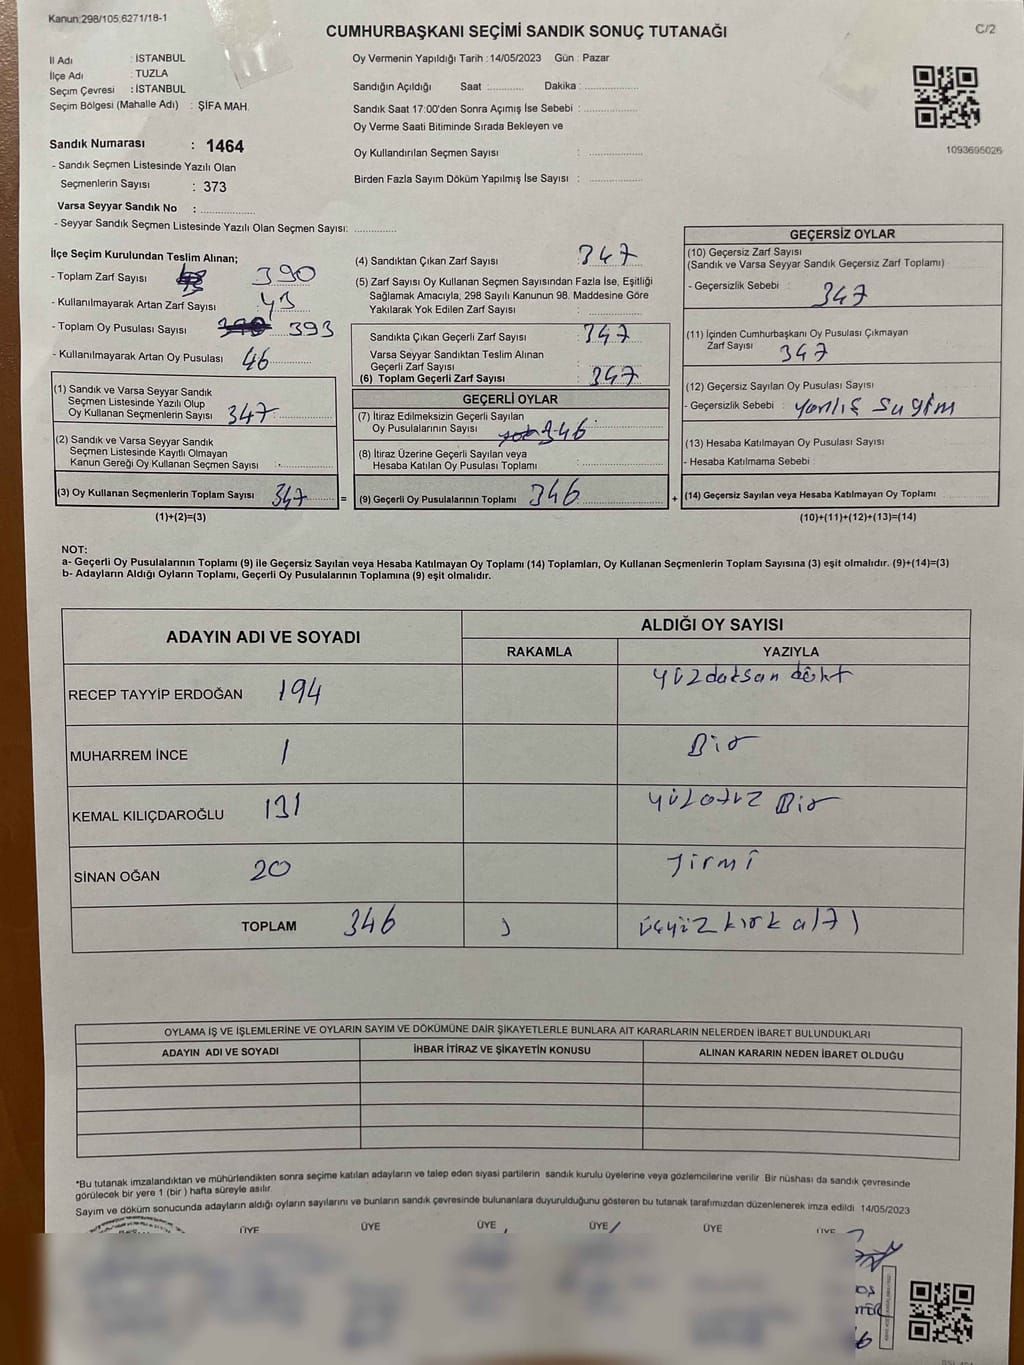 Kanun:298/105,6271/18-1
CUMHURBAŞKANI SEÇİMİ SANDIK SONUÇ TUTANAĞI
C/2
İl Adı : İSTANBUL
İlçe Adı : TUZLA
Seçim Çevresi : İSTANBUL
Seçim Bölgesi (Mahalle Adı) : ŞİFA MAH.
Oy Vermenin Yapıldığı Tarih : 14/05/2023 Gün : Pazar
Sandığın Açıldığı Saat Dakika :
Sandık Saat 17:00'den Sonra Açımış İse Sebebi :
Oy Verme Saati Bitiminde Sırada Bekleyen ve
Oy Kullandırılan Seçmen Sayısı :
Birden Fazla Sayım Döküm Yapılmış İse Sayısı :
1093695026
Sandık Numarası : 1464
- Sandık Seçmen Listesinde Yazılı Olan
Seçmenlerin Sayısı : 373
Varsa Seyyar Sandık No :
- Seyyar Sandık Seçmen Listesinde Yazılı Olan Seçmen Sayısı:
İlçe Seçim Kurulundan Teslim Alınan;
- Toplam Zarf Sayısı 390
- Kullanılmayarak Artan Zarf Sayısı 43
- Toplam Oy Pusulası Sayısı 393
- Kullanılmayarak Artan Oy Pusulası 46
(1) Sandık ve Varsa Seyyar Sandık
Seçmen Listesinde Yazılı Olup
Oy Kullanan Seçmenlerin Sayısı 347
(2) Sandık ve Varsa Seyyar Sandık
Seçmen Listesinde Kayıtlı Olmayan
Kanun Gereği Oy Kullanan Seçmen Sayısı
(3) Oy Kullanan Seçmenlerin Toplam Sayısı 347 =
(1)+(2)=(3)
(4) Sandıktan Çıkan Zarf Sayısı : 347
(5) Zarf Sayısı Oy Kullanan Seçmen Sayısından Fazla İse, Eşitliği
Sağlamak Amacıyla, 298 Sayılı Kanunun 98. Maddesine Göre
Yakılarak Yok Edilen Zarf Sayısı :
Sandıkta Çıkan Geçerli Zarf Sayısı : 347
Varsa Seyyar Sandıktan Teslim Alınan
Geçerli Zarf Sayısı :
(6) Toplam Geçerli Zarf Sayısı : 347
GEÇERLİ OYLAR
(7) İtiraz Edilmeksizin Geçerli Sayılan
Oy Pusulalarının Sayısı 346
(8) İtiraz Üzerine Geçerli Sayılan veya
Hesaba Katılan Oy Pusulası Toplamı
(9) Geçerli Oy Pusulalarının Toplamı 346 +
GEÇERSİZ OYLAR
(10) Geçersiz Zarf Sayısı
(Sandık ve Varsa Seyyar Sandık Geçersiz Zarf Toplamı)
- Geçersizlik Sebebi : 347
(11) İçinden Cumhurbaşkanı Oy Pusulası Çıkmayan
Zarf Sayısı 347
(12) Geçersiz Sayılan Oy Pusulası Sayısı
- Geçersizlik Sebebi : yanlış
(13) Hesaba Katılmayan Oy Pusulası Sayısı
- Hesaba Katılmama Sebebi
(14) Geçersiz Sayılan veya Hesaba Katılmayan Oy Toplamı
(10)+(11)+(12)+(13)=(14)
NOT:
a- Geçerli Oy Pusulalarının Toplamı (9) ile Geçersiz Sayılan veya Hesaba Katılmayan Oy Toplamı (14) Toplamları, Oy Kullanan Seçmenlerin Toplam Sayısına (3) eşit olmalıdır. (9)+(14)=(3)
b- Adayların Aldığı Oyların Toplamı, Geçerli Oy Pusulalarının Toplamına (9) eşit olmalıdır.
ADAYIN ADI VE SOYADI
ALDIĞI OY SAYISI
RAKAMLA YAZIYLA
RECEP TAYYİP ERDOĞAN 194 yüzdoksan dört
MUHARREM İNCE 1 Bir
KEMAL KILIÇDAROĞLU 131 yüzotuz Bir
SİNAN OĞAN 20 Jirmi
TOPLAM 346 üçyüz kırk altı
OYLAMA İŞ VE İŞLEMLERİNE VE OYLARIN SAYIM VE DÖKÜMÜNE DAİR ŞİKAYETLERLE BUNLARA AİT KARARLARIN NELERDEN İBARET BULUNDUKLARI
ADAYIN ADI VE SOYADI İHBAR İTİRAZ VE ŞİKAYETİN KONUSU ALINAN KARARIN NEDEN İBARET OLDUĞU
*Bu tutanak imzalandıktan ve mühürlendikten sonra seçime katılan adayların ve talep eden siyasi partilerin sandık kurulu üyelerine veya gözlemcilerine verilir Bir nüshası da sandık çevresinde
görülecek bir yere 1 (bir ) hafta süreyle asılır.
Sayım ve döküm sonucunda adayların aldığı oyların sayılarını ve bunların sandık çevresinde bulunanlara duyurulduğunu gösteren bu tutanak tarafımızdan düzenlenerek imza edildi. 14/05/2023
ÜYE ÜYE ÜYE ÜYE ÜYE ÜYE